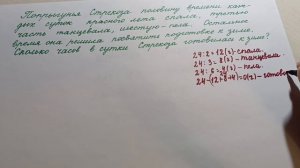 Попрыгунья Стрекоза половину времени каж-
дых суток красного лета спала, третью
часть танцевала, шестую - пела. Остальное
время она решила посвятить подготовке к зиме.
Сколько часов в сутки Стрекоза готовилась к зиме?
24:2=12(ч)-спала.
24:3=8(ч)-танцевала.
24:6=4(ч)-пела.
24-(12+8+4)=0(ч)-готови